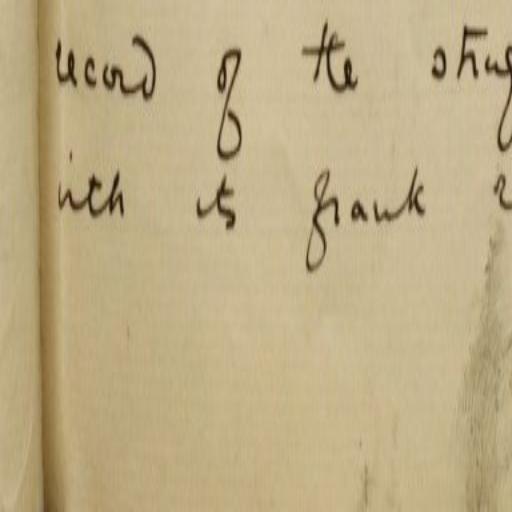 record of the
with its frank